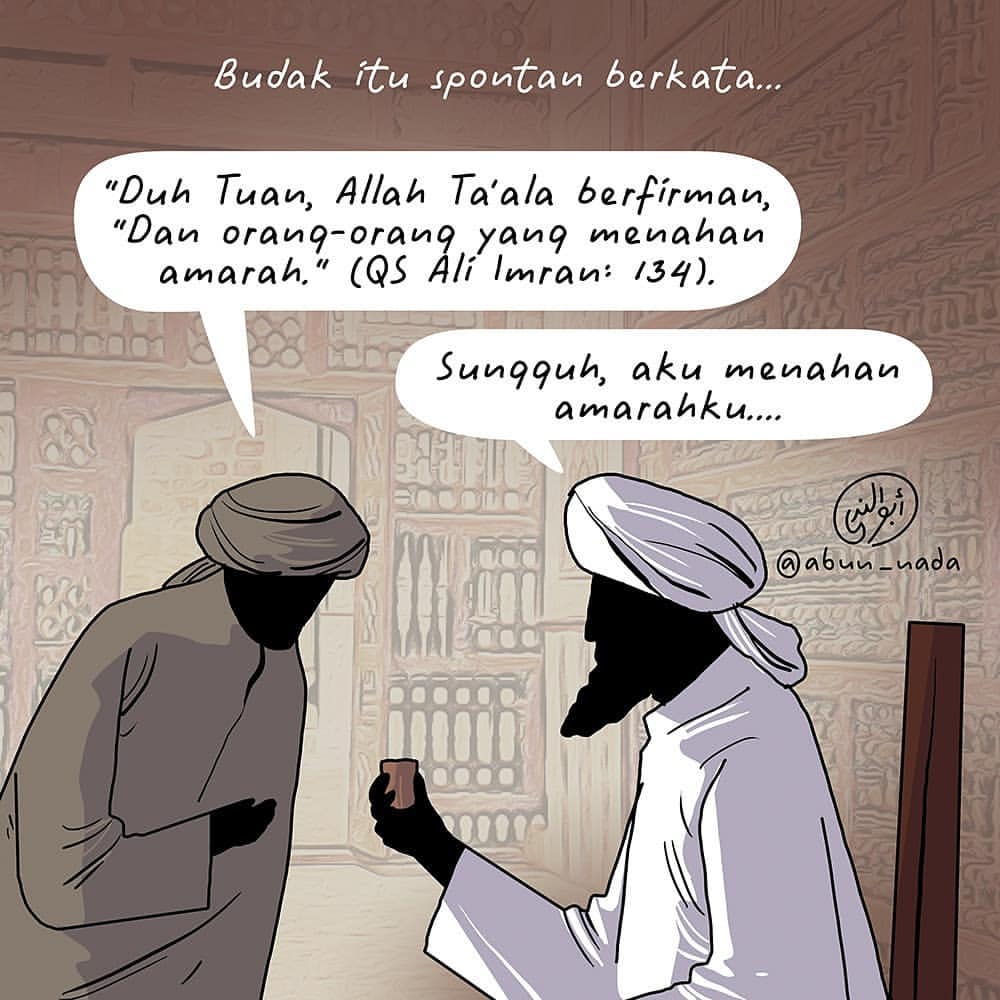 Budak itu spontan berkata...
"Duh Tuan, Allah Ta'ala berfirman,
"Dan orang-orang yang menahan
amarah." (QS Ali Imran: 134).
Sungguh, aku menahan
amarahku....
أبو الندى
@abun_nada